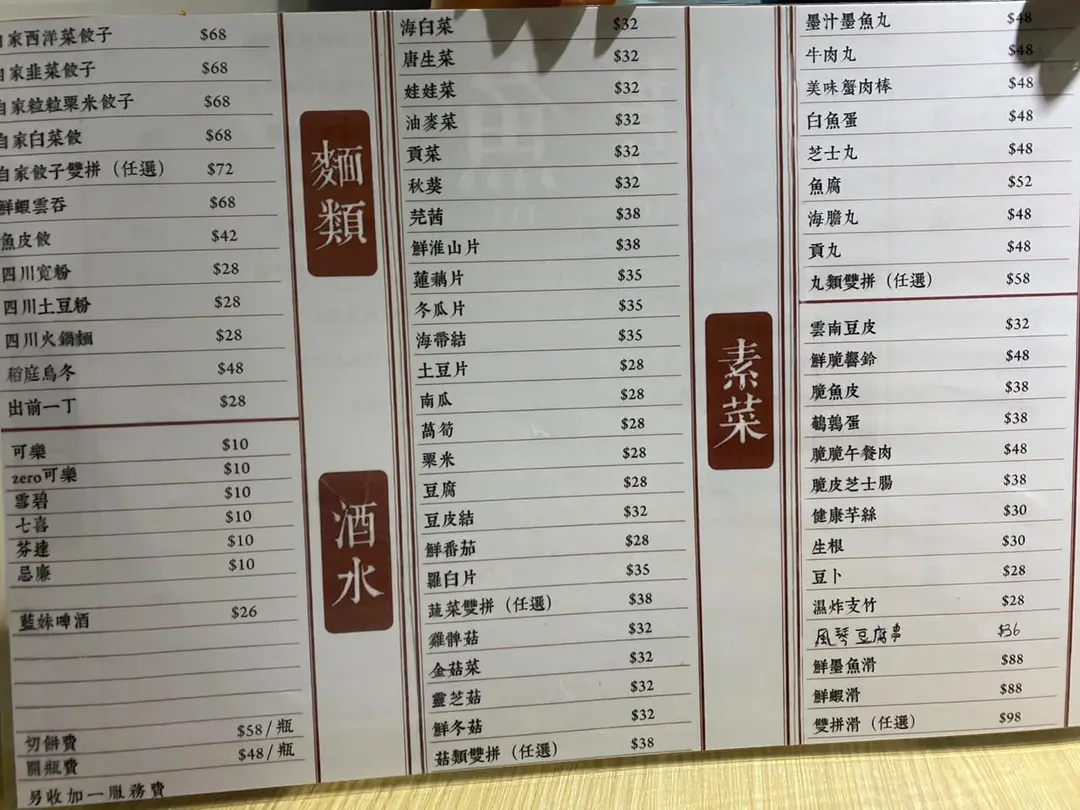 自家西洋菜餃子 $68
自家韭菜餃子 $68
自家粒粒粟米餃子 $68
自家白菜餃 $68
自家餃子雙拼（任選） $72
鮮蝦雲吞 $68
魚皮餃 $42
四川寬粉 $28
四川土豆粉 $28
四川火鍋麵 $28
稻庭烏冬 $48
出前一丁 $28
可樂 $10
zero可樂 $10
雪碧 $10
七喜 $10
芬達 $10
忌廉 $10
藍妹啤酒 $26
切餅費 $58/瓶
開瓶費 $48/瓶
另收加一服務費
麵類
酒水
海白菜 $32
唐生菜 $32
娃娃菜 $32
油麥菜 $32
貢菜 $32
秋葵 $32
芫茜 $38
鮮淮山片 $38
蓮藕片 $35
冬瓜片 $35
海帶結 $35
土豆片 $28
南瓜 $28
萵筍 $28
粟米 $28
豆腐 $28
豆皮結 $32
鮮番茄 $28
羅白片 $35
蔬菜雙拼（任選） $38
雞髀菇 $32
金菇菜 $32
靈芝菇 $32
鮮冬菇 $32
菇類雙拼（任選） $38
素菜
墨汁墨魚丸 $48
牛肉丸 $48
美味蟹肉棒 $48
白魚蛋 $48
芝士丸 $48
魚腐 $52
海膽丸 $48
貢丸 $48
丸類雙拼（任選） $58
雲南豆皮 $32
鮮脆響鈴 $48
脆魚皮 $38
鵪鶉蛋 $38
脆脆午餐肉 $48
脆皮芝士腸 $38
健康芋絲 $30
生根 $30
豆卜 $28
濕炸支竹 $28
風琴豆腐串 $36
鮮墨魚滑 $88
鮮蝦滑 $88
雙拼滑（任選） $98